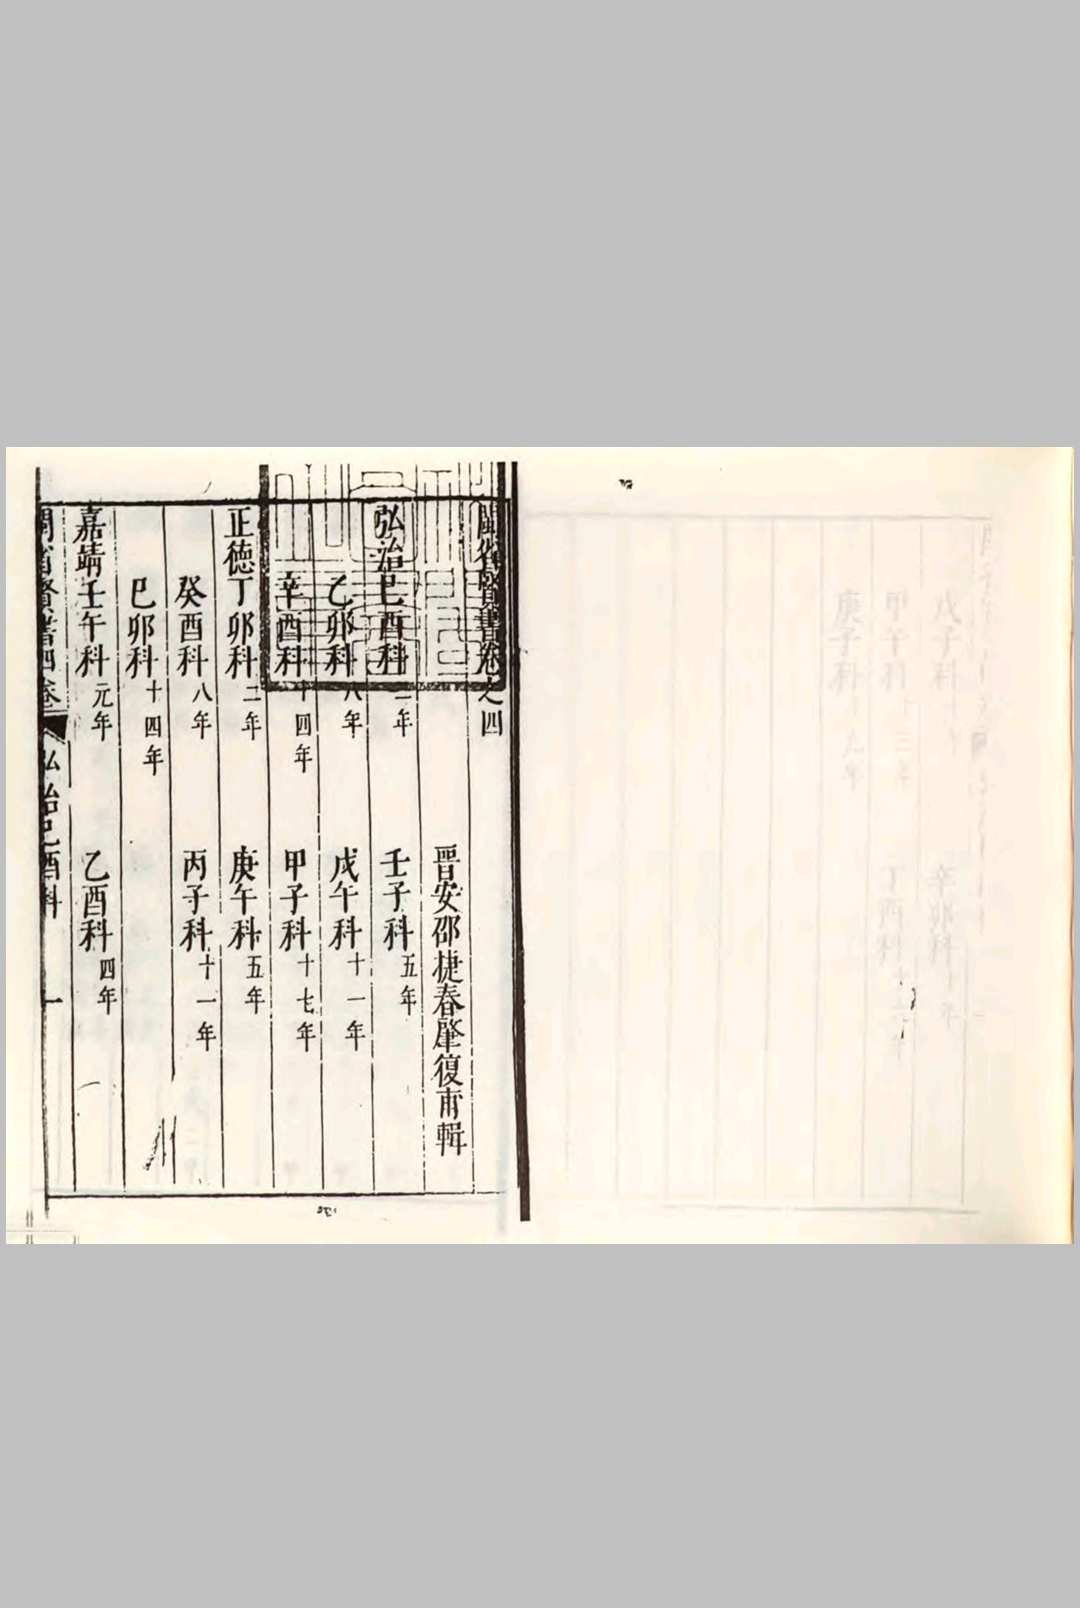 戊子科 辛卯科十年
甲午科十三年 丁酉科
庚子科十九年
閩省賢書卷之四
晉安邵捷春肇復甫輯
弘治巳酉科二年 壬子科五年
乙卯科八年 戊午科十一年
辛酉科十四年 甲子科十七年
正德丁卯科二年 庚午科五年
癸酉科八年 丙子科十一年
巳卯科十四年
嘉靖壬午科元年 乙酉科四年
閩省賢書四卷 弘治巳酉科 一